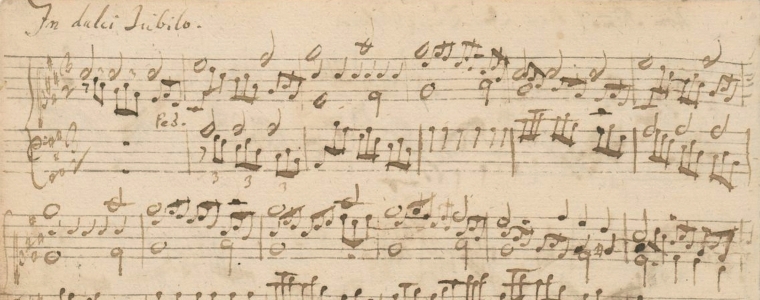 In dulci Jubilo.
Ped.
3 3 3